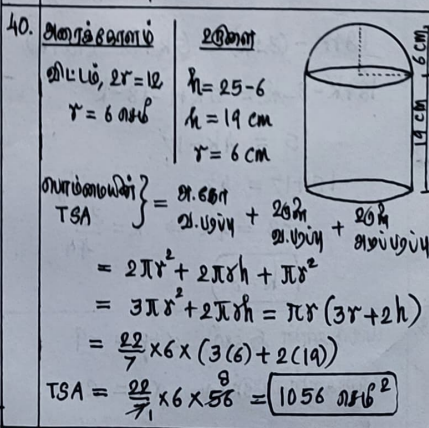 40. அரைக்கோளம் உருளை
விட்டம், 2r = 12 h = 25 - 6
r = 6 செமீ h = 19 cm
r = 6 cm
6 cm
19 cm
பொம்மையின் TSA } = அ.கோ வ.பரப்பு + உரு வ.பரப்பு + உரு அடிப்பரப்பு
= 2πr² + 2πrh + πr²
= 3πr² + 2πrh = πr (3r + 2h)
= 22/7 × 6 × (3(6) + 2(19))
TSA = 22/7 1 × 6 × 56 8 = 1056 செமீ²